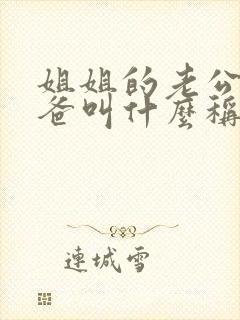 姐姐的老公
爸叫什麼稱
連城雪